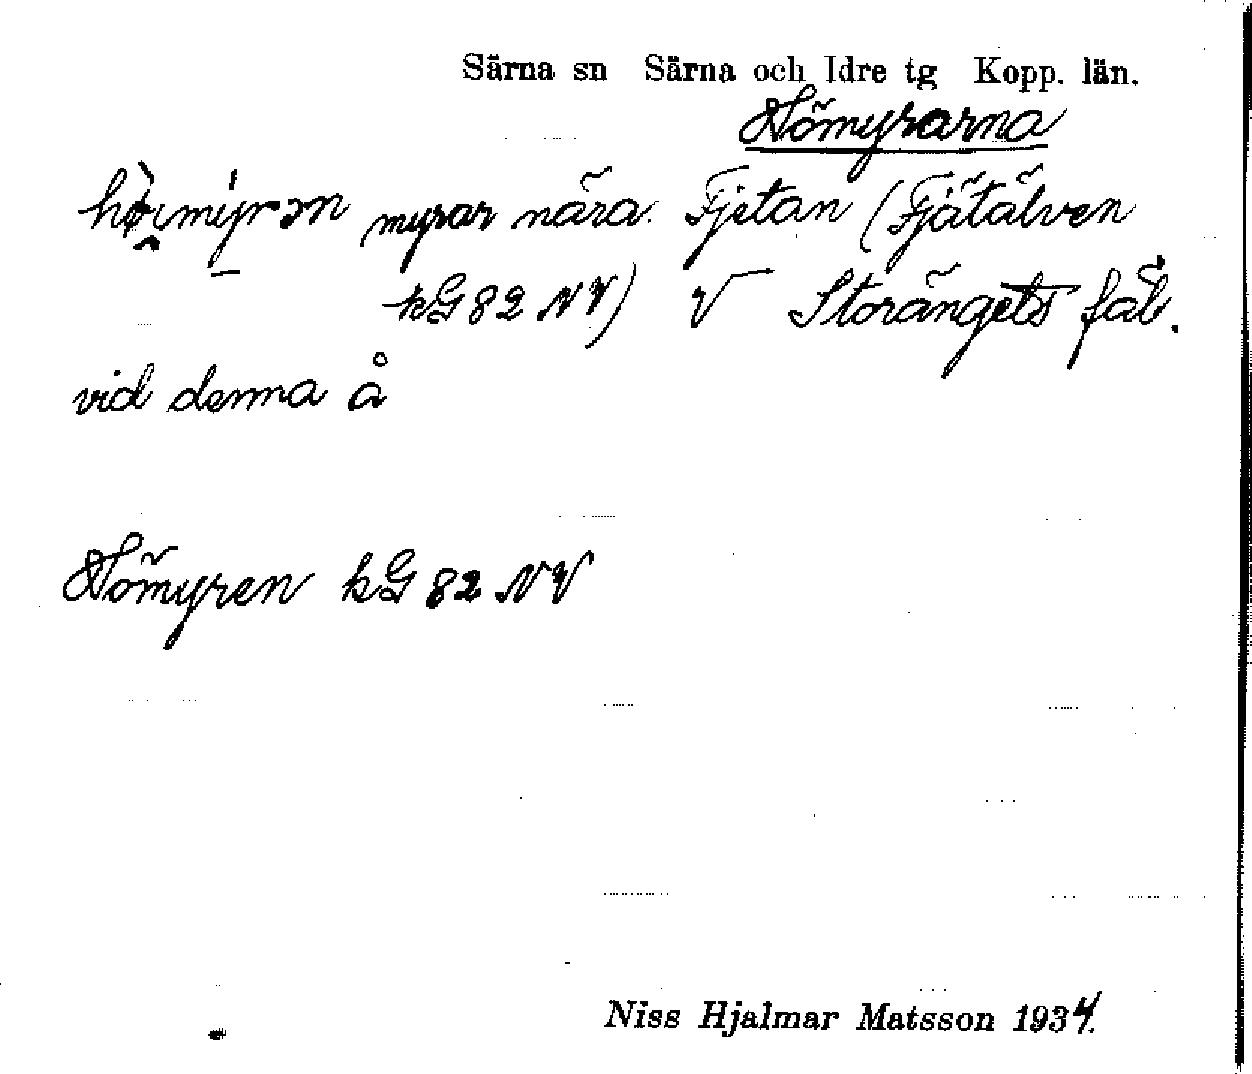 Särna sn Särna och Idre tg Kopp. län.
Hömyrarna
myrar nära Fjetan (Fjätälven
kG 82 NV) V Storängets fäb.
vid denna å
Hömyren kG 82 NV
Niss Hjalmar Matsson 1934.